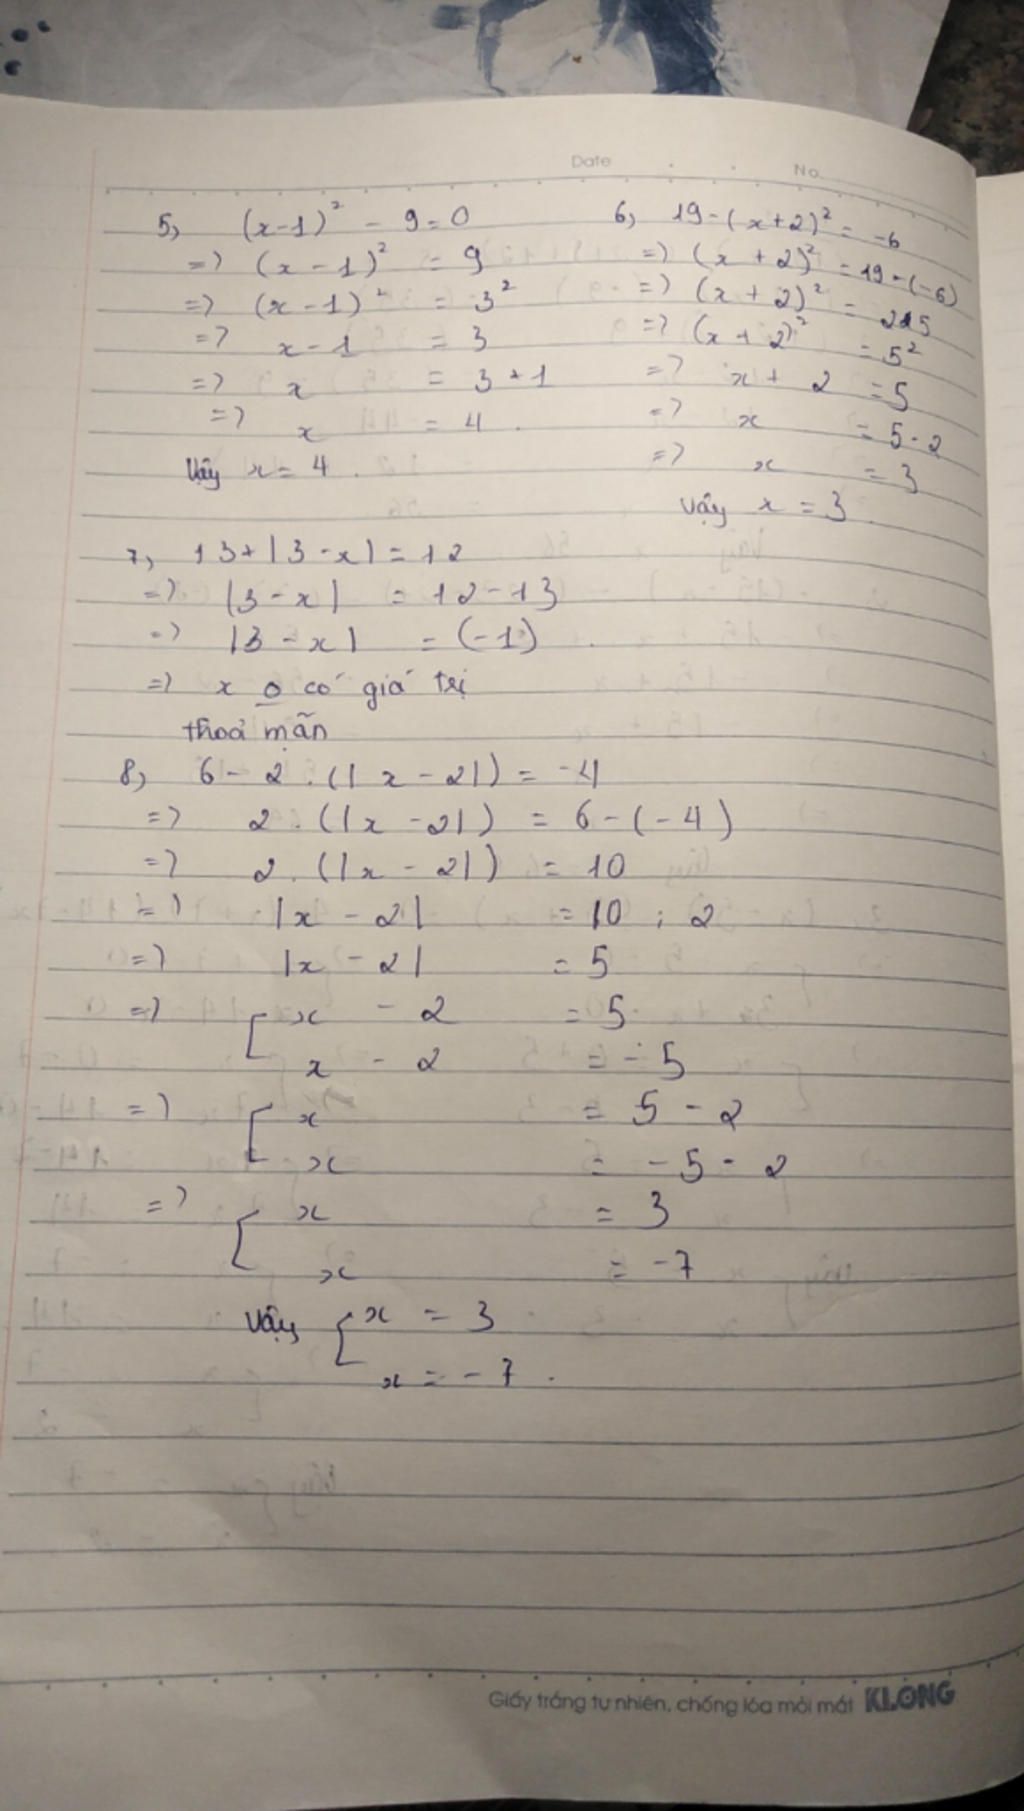 Date No
5, (x-1)² - 9 = 0
=> (x - 1)² = 9
=> (x - 1)² = 3²
=> x - 1 = 3
=> x = 3 + 1
=> x = 4 .
Vậy x = 4 .
6, 19 - (x + 2)² = -6
=> (x + 2)² = 19 - (-6)
=> (x + 2)² = 25
=> (x + 2)² = 5²
=> x + 2 = 5
=> x = 5 - 2
=> x = 3
Vậy x = 3 .
7, 13 + |3 - x| = 12
=> |3 - x| = 12 - 13
=> |3 - x| = (-1) .
=> x o có giá trị
thoả mãn
8, 6 - 2 . (| x - 2|) = -4
=> 2 . (|x - 2|) = 6 - (-4)
=> 2 . (|x - 2|) = 10
=> |x - 2| = 10 : 2
=> |x - 2| = 5
=> [ x - 2 = 5
x - 2 = - 5
=> [ x = 5 - 2
x = -5 - 2
=> [ x = 3
x = -7
Vậy [ x = 3
x = -7 .
Giấy trắng tự nhiên, chống lóa mỏi mắt KLONG